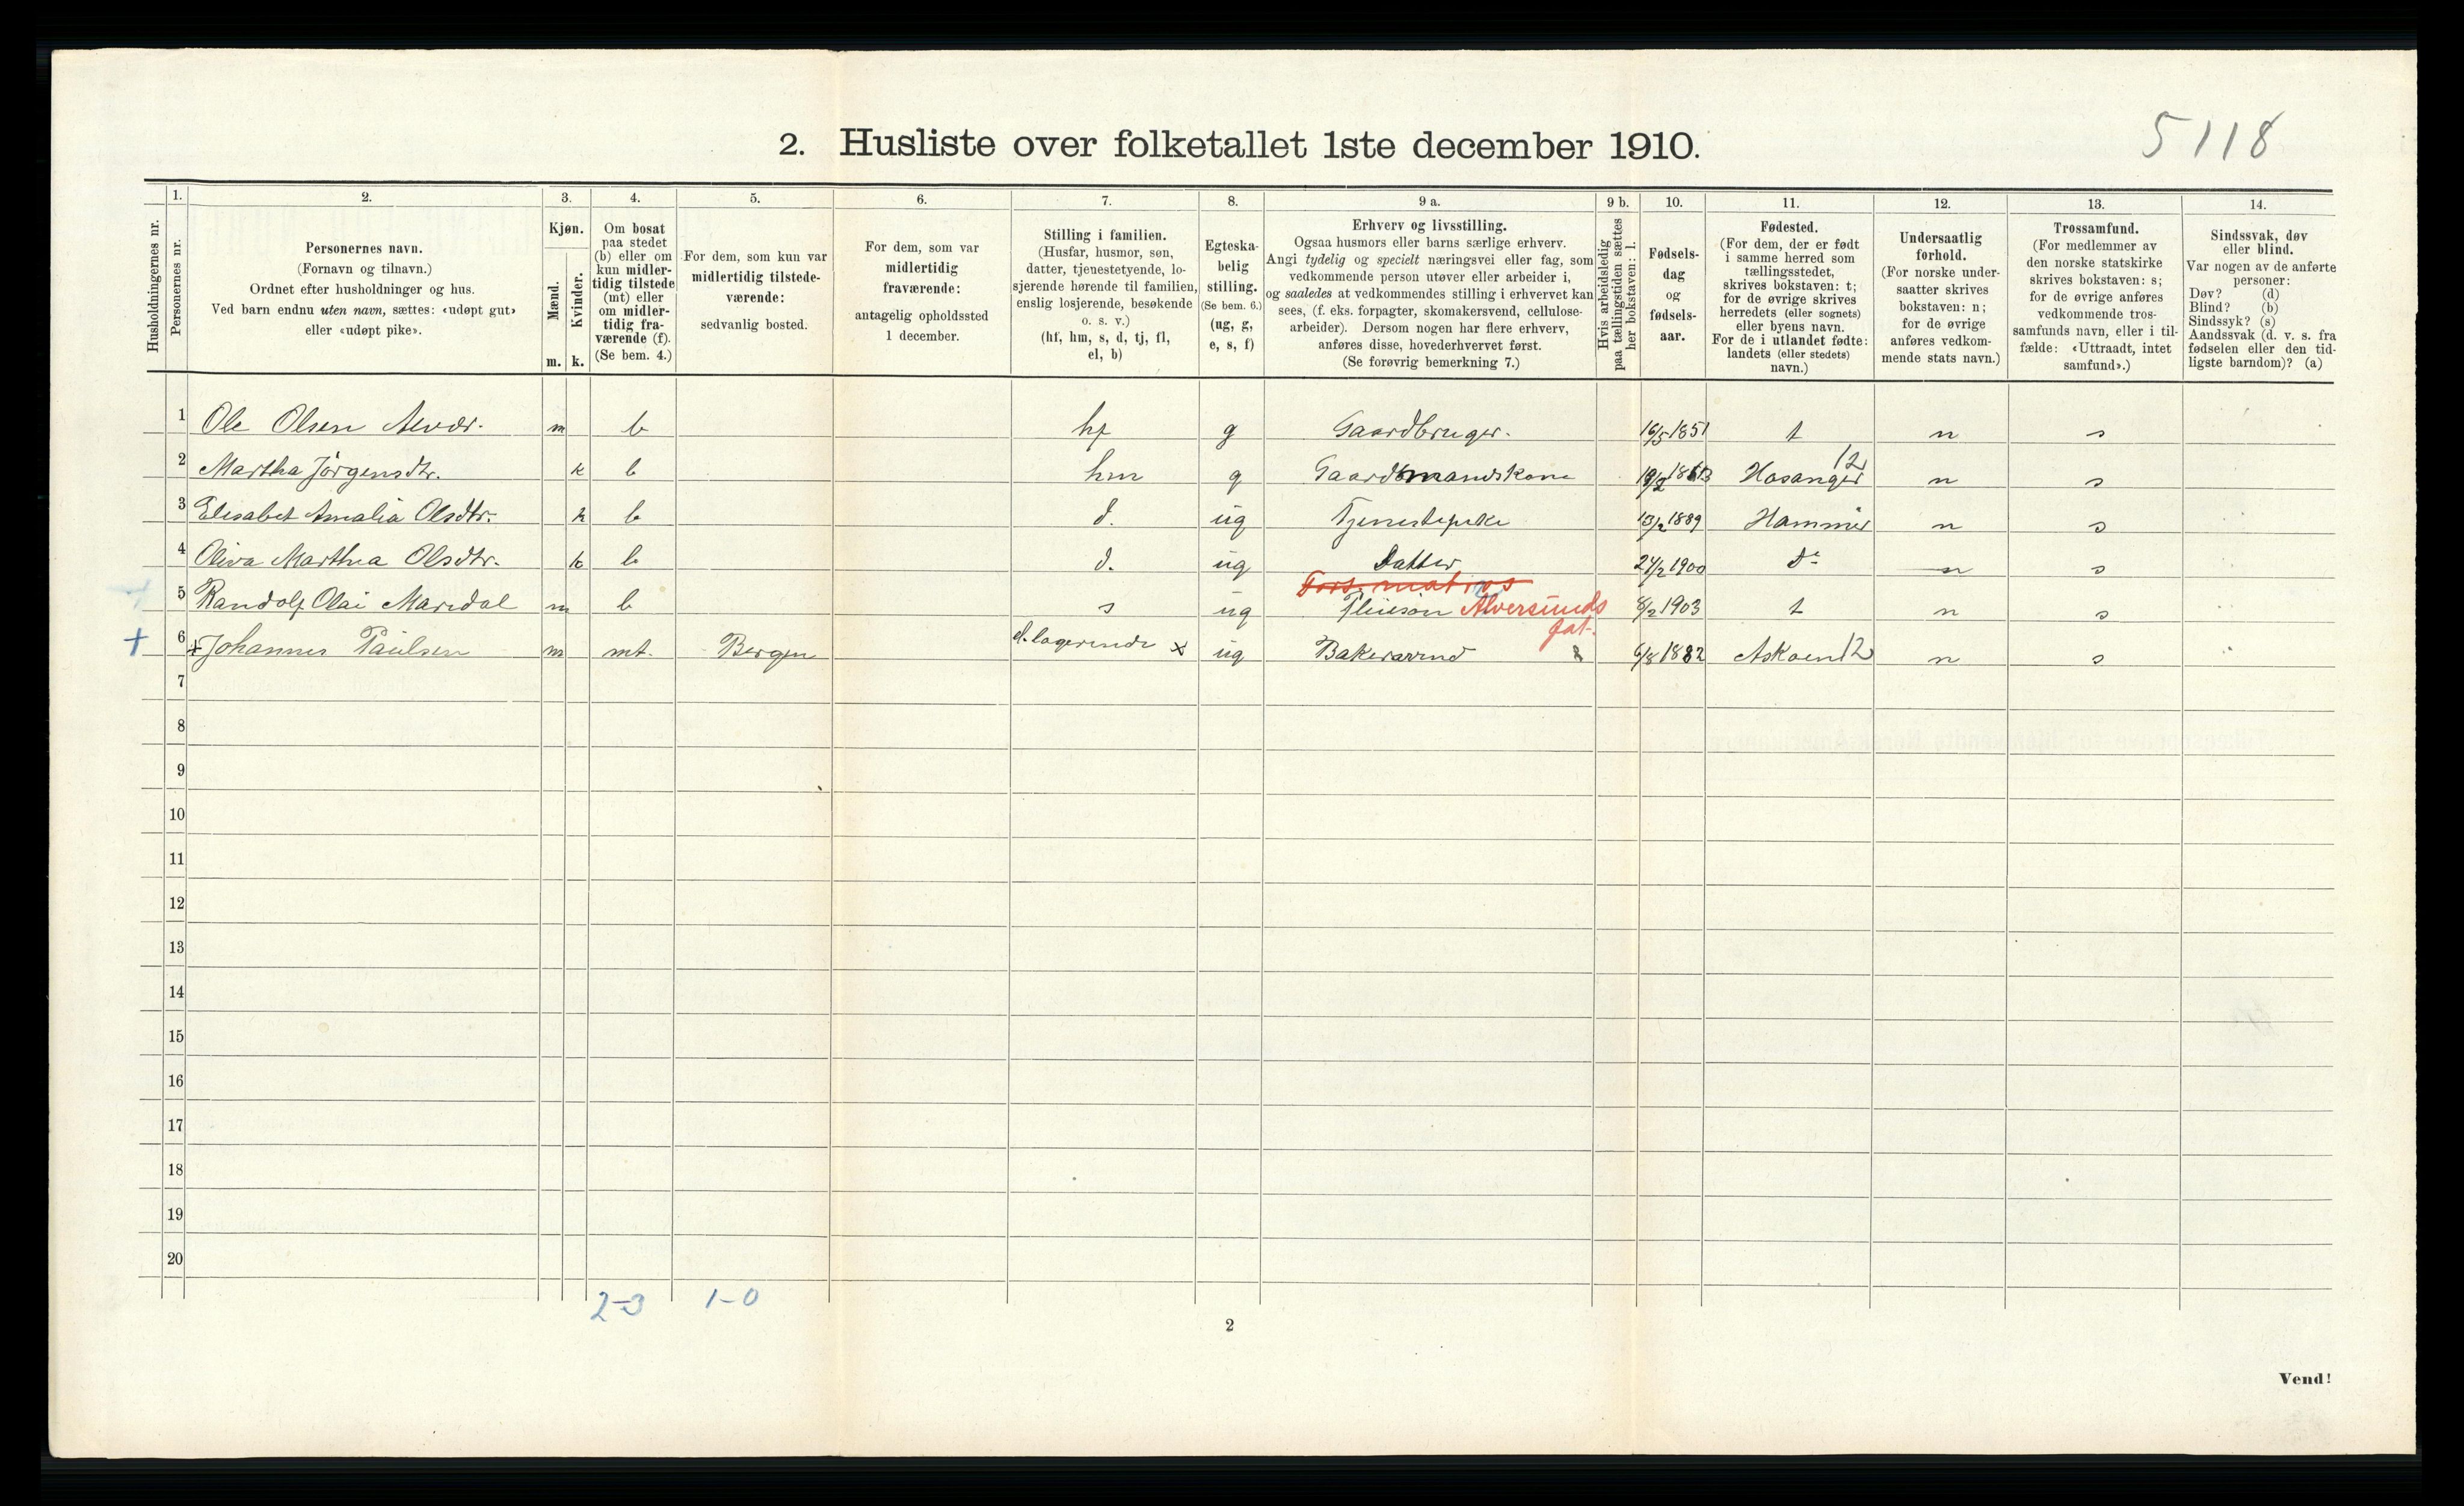 5118
2. Husliste over folketallet 1ste december 1910.
Husholdningernes nr.
1.
Personernes nr.
2.
Personernes navn.
(Fornavn og tilnavn.)
Ordnet efter husholdninger og hus.
Ved barn endnu uten navn, sættes: «udøpt gut»
eller «udøpt pike».
3.
Kjøn.
Mænd.
Kvinder.
m. k.
4.
Om bosat
paa stedet
(b) eller om
kun midler-
tidig tilstede
(mt) eller
om midler-
tidig fra-
værende (f).
(Se bem. 4.)
5.
For dem, som kun var
midlertidig tilstede-
værende:
sedvanlig bosted.
6.
For dem, som var
midlertidig
fraværende:
antagelig opholdssted
1 december.
7.
Stilling i familien.
(Husfar, husmor, søn,
datter, tjenestetyende, lo-
sjerende hørende til familien,
enslig losjerende, besøkende
o. s. v.)
(hf, hm, s, d, tj, fl,
el, b)
8.
Egteska-
belig
stilling.
(Se bem. 6.)
(ug, g,
e, s, f)
9 a.
Erhverv og livsstilling.
Ogsaa husmors eller barns særlige erhverv.
Angi tydelig og specielt næringsvei eller fag, som
vedkommende person utøver eller arbeider i,
og saaledes at vedkommendes stilling i erhvervet kan
sees, (f. eks. forpagter, skomakersvend, cellulose-
arbeider). Dersom nogen har flere erhverv,
anføres disse, hovederhvervet først.
(Se forøvrig bemerkning 7.)
9 b.
Hvis arbeidsledig
paa tællingstiden sættes
her bokstaven: l.
10.
Fødsels-
dag
og
fødsels-
aar.
11.
Fødested.
(For dem, der er født
i samme herred som
tællingsstedet,
skrives bokstaven: t;
for de øvrige skrives
herredets (eller sognets)
eller byens navn.
For de i utlandet fødte:
landets (eller stedets)
navn.)
12.
Undersaatlig
forhold.
(For norske under-
saatter skrives
bokstaven: n;
for de øvrige
anføres vedkom-
mende stats navn.)
13.
Trossamfund.
(For medlemmer av
den norske statskirke
skrives bokstaven: s;
for de øvrige anføres
vedkommende tros-
samfunds navn, eller i til-
fælde: «Uttraadt, intet
samfund».)
14.
Sindssvak, døv
eller blind.
Var nogen av de anførte
personer:
Døv? (d)
Blind? (b)
Sindssyk? (s)
Aandssvak (d. v. s. fra
fødselen eller den tid-
ligste barndom)? (a)
1 Ole Olsen m b hf g Gaardbruger. 16/5 1851 t n s
2 Martha Jörgensdtr. k b hm g Gaardsmandskone Hosanger 12 n s
3 Elisabet Amalia Olsdtr. k b d. ug Tjenestepike 13/2 1889 Hammer n s
4 Oliva Marthea Olsdtr. k b d. ug Datter 24/2 1900 do n s
5 Randolf Olai Maridal m b s ug Pleiesön Alversunds fat. 8/2 1903 t n s
+ 6 Johannes Paulsen m mt. Bergen x ug Bakersvend 6/8 1882 Askøen 12 n s
7
8
9
10
11
12
13
14
15
16
17
18
19
20
2-3 1-0
2
Vend!